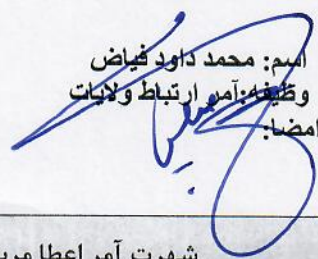 اسم: محمد داود فیاض
وظیفه:آمر ارتباط ولایات
امضا:
شهرت آمر اعطا